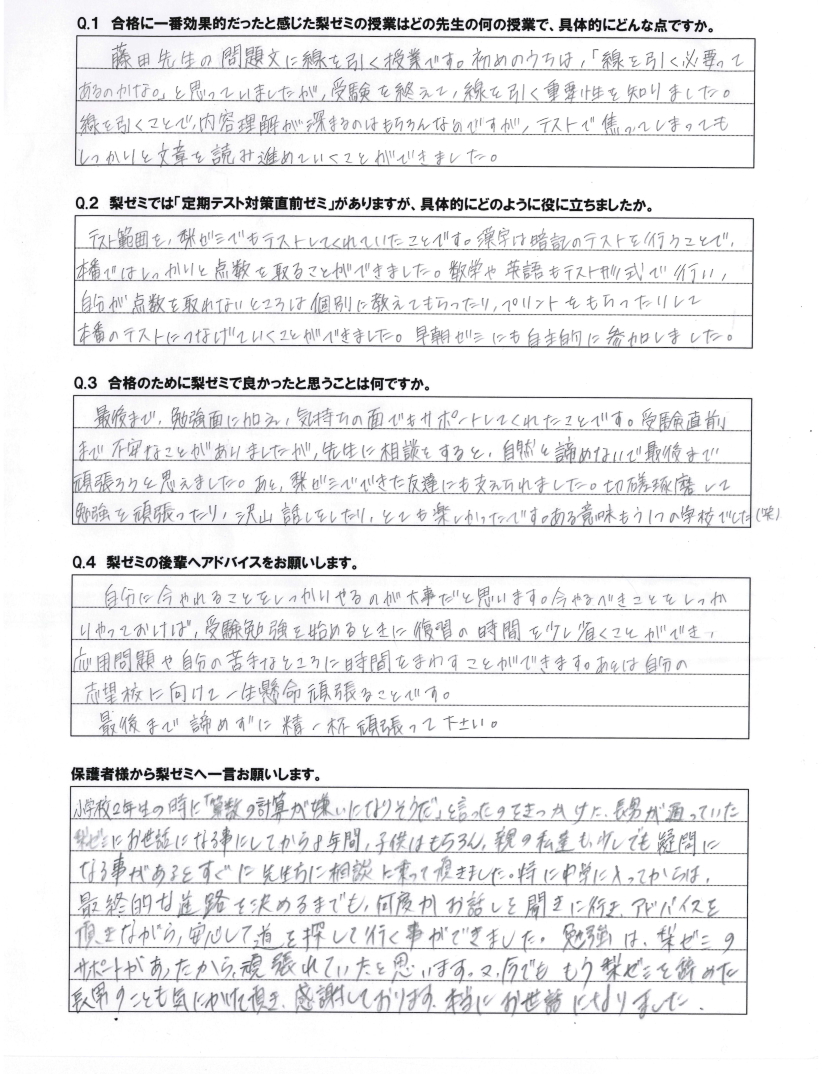 Q.1 合格に一番効果的だったと感じた梨ゼミの授業はどの先生の何の授業で、具体的にどんな点ですか。
藤田先生の問題文に線を引く授業です。初めのうちは,「線を引く必要って
あるのかな。」と思っていましたが,受験を終えて,線を引く重要性を知りました。
線を引くことで,内容理解が深まるのはもちろんなのですが,テストで焦ってしまっても
しっかりと文章を読み進めていくことができました。
Q.2 梨ゼミでは「定期テスト対策直前ゼミ」がありますが、具体的にどのように役に立ちましたか。
テスト範囲を,梨ゼミでもテストしてくれていたことです。漢字は暗記のテストを行うことで,
本番ではしっかりと点数を取ることができました。数学や英語もテスト形式で行い,
自分が点数を取れないところは個別に教えてもらったり,プリントをもらったりして
本番のテストにつなげていくことができました。早朝ゼミにも自主的に参加しました。
Q.3 合格のために梨ゼミで良かったと思うことは何ですか。
最後まで,勉強面に加え,気持ちの面でもサポートしてくれたことです。受験直前
まで不安なことがありましたが,先生に相談をすると,自然と諦めないで最後まで
頑張ろうと思えました。あと,梨ゼミでできた友達にも支えられました。切磋琢磨して
勉強を頑張ったり,沢山話しをしたり,とても楽しかったです。ある意味もう1つの学校でした(笑)
Q.4 梨ゼミの後輩へアドバイスをお願いします。
自分に今やれることをしっかりやるのが大事だと思います。今やるべきことをしっか
りやっておけば,受験勉強を始めるときに復習の時間を少し省くことができ,
応用問題や自分の苦手なところに時間をまわすことができます。あとは自分の
志望校に向けて一生懸命頑張ることです。
最後まで諦めずに精一杯頑張って下さい。
保護者様から梨ゼミへ一言お願いします。
小学校2年生の時に「算数の計算が嫌いになりそうだ」と言ったのをきっかけに、長男が通っていた
梨ゼミにお世話になる事にしてから8年間,子供はもちろん,親の私達も,少しでも疑問に
なる事があるとすぐに先生方に相談に乗って頂きました。特に中学に入ってからは,
最終的な進路を決めるまでも,何度かお話しを聞きに行き、アドバイスを
頂きながら,安心して道を探して行く事ができました。勉強は、梨ゼミの
サポートがあったから,頑張れていたと思います。又,何でももう梨ゼミを辞めた
長男のことも気にかけて頂き、感謝しております。本当にお世話になりました.